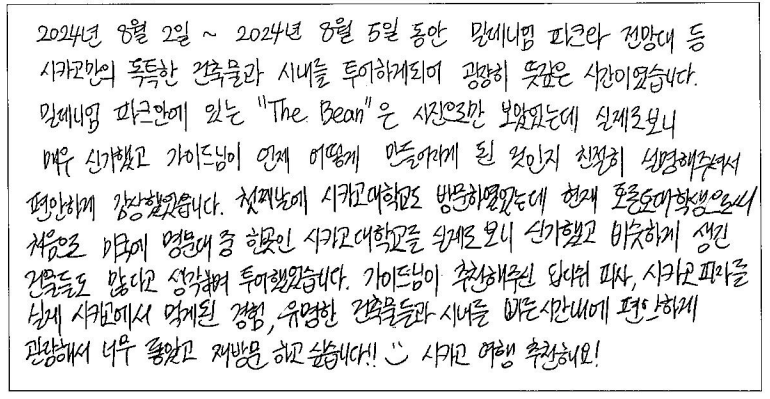 2024년 8월 2일 ~ 2024년 8월 5일 동안 밀레니엄 파크와 전망대 등
시카고만의 독특한 건축물과 시내를 투어하게되어 굉장히 뜻깊은 시간이였습니다.
밀레니엄 파크안에 있는 "The Bean"은 사진으로만 보았었는데 실제로보니
매우 신기했고 가이드님이 언제 어떻게 만들어지게 된 것인지 친절히 설명해주셔서
편안하게 감상했었습니다. 첫째날에 시카고대학교도 방문하였었는데 현재 토론토대학생으로써
처음으로 미국에 명문대 중 한곳인 시카고대학교를 실제로 보니 신기했고 비슷하게 생긴
건물들도 많다고 생각하며 투어했었습니다. 가이드님이 추천해주신 딥디쉬 피자, 시카고 피자를
실제 시카고에서 먹게된 경험, 유명한 건축물들과 시내를 빠른시간내에 편안하게
관광해서 너무 좋았고 재방문 하고 싶습니다!! 시카고 여행 추천해요!